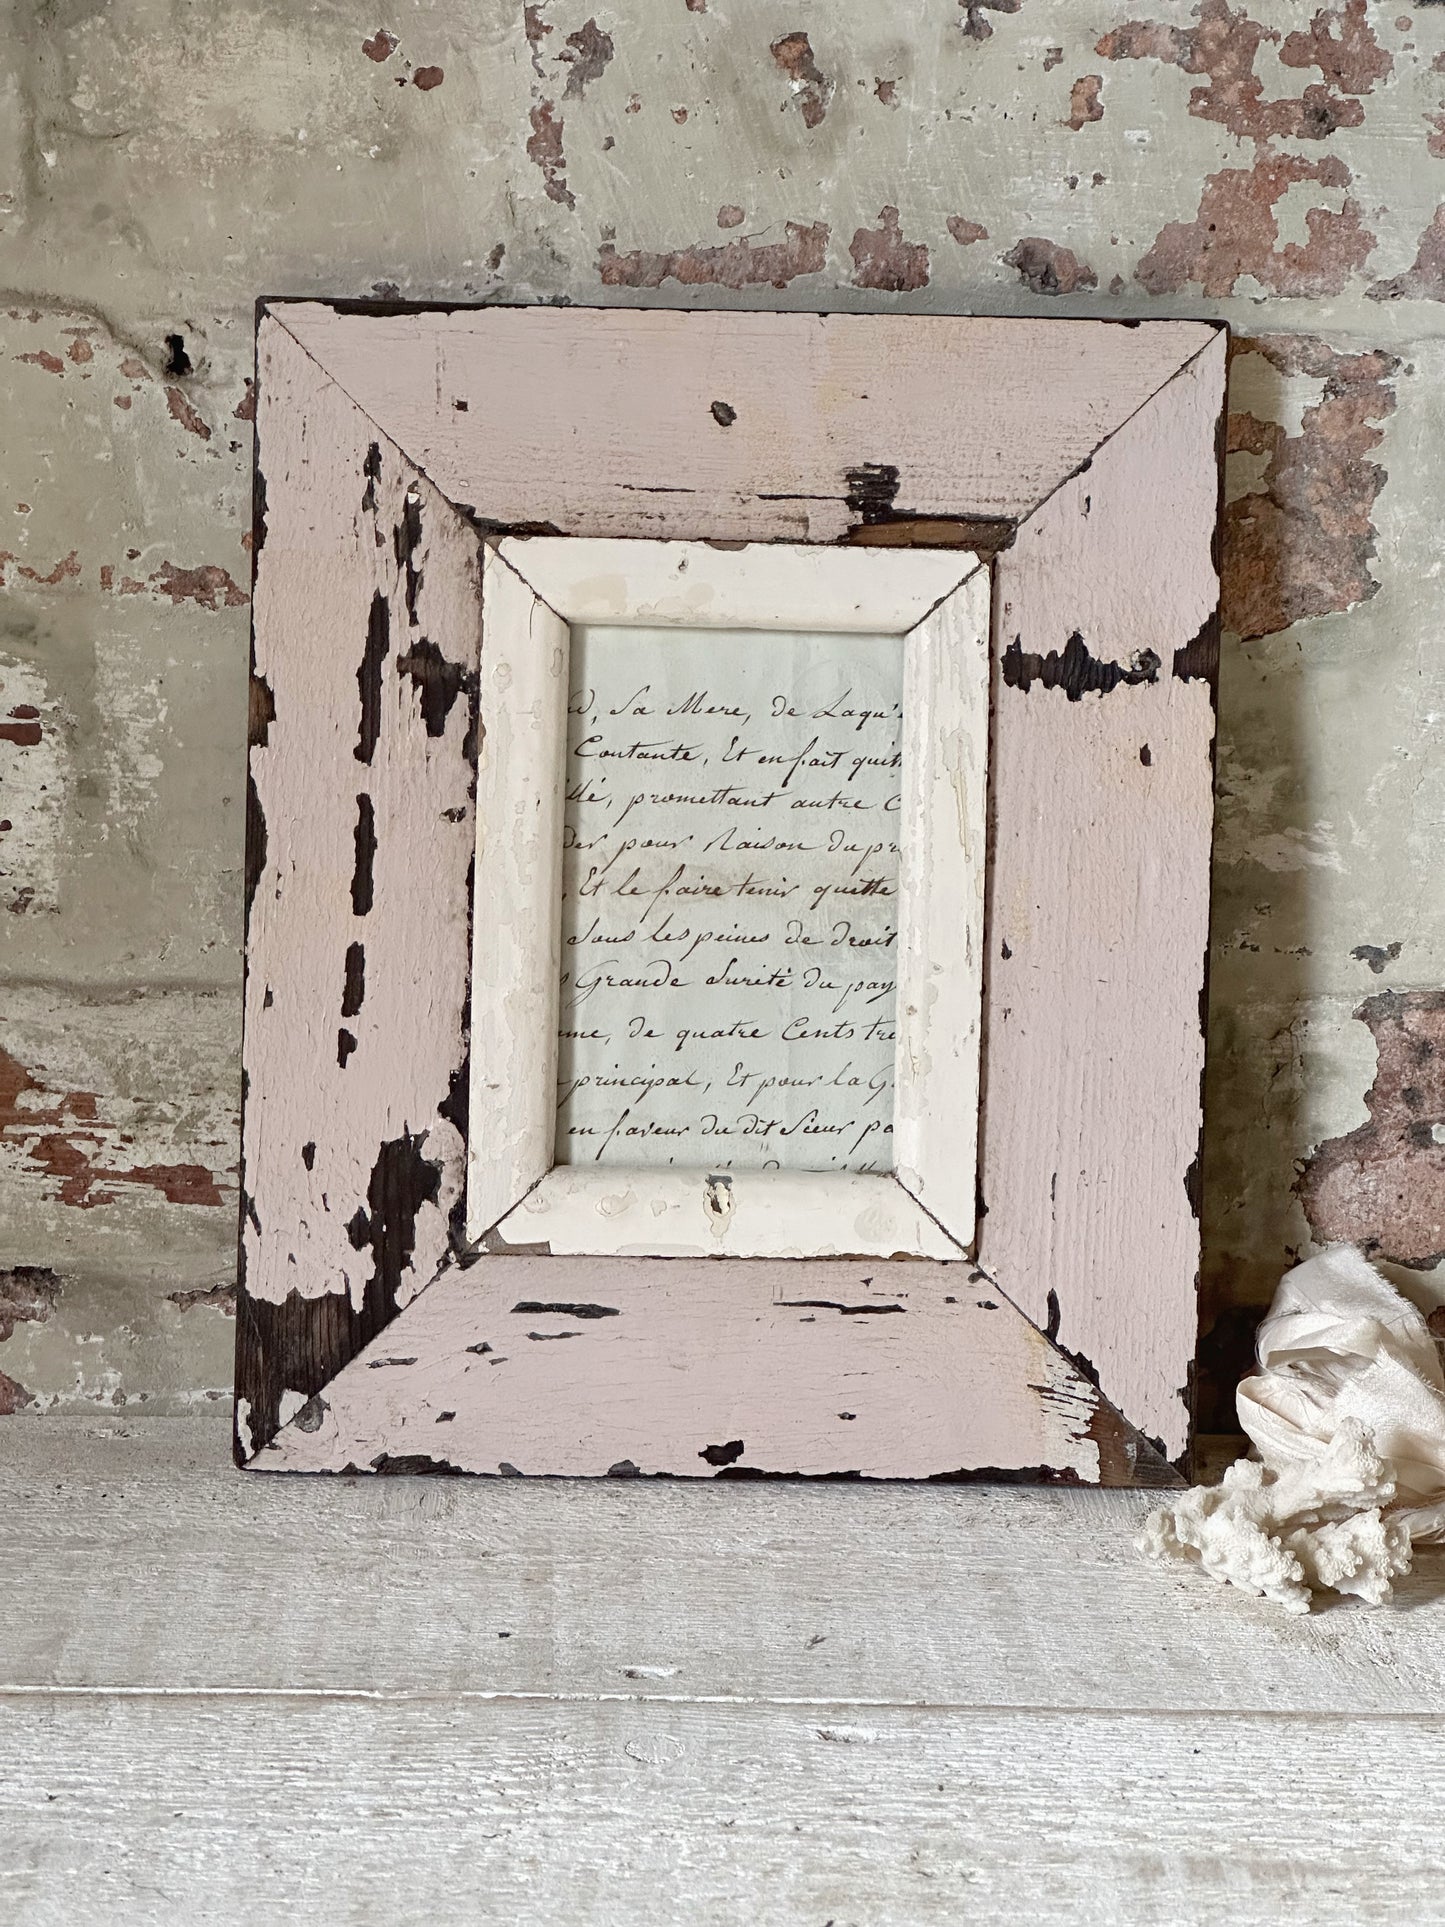 d, sa Mere, de Laqu'
Contante, Et en fait quitt
illé, promettant autre C
der pour Raison du pr
, Et le faire tenir quitte
Sous les peines de droit
s Grande Sureté du pay
me, de quatre Cents tre
principal, Et pour la G
en faveur du dit Sieur pa